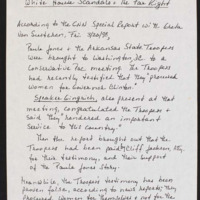 White House Scandals & The Far Right
According to the CNN Special Report with Greta
Van Susteren, Fri. 
Paula Jones & the Arkansas State Troopers
were brought to Washington, DC to a
Conservative PAC meeting. The Troopers
had recently testified that they "procured
women for Governor Clinton."
Speaker Gingrich, also present at that
meeting, congratulated the Troopers &
said they "rendered an important
service to this country."
Then the report brought out that the
Troopers had been paid (Cliff Jackson, atty)
for their testimony, and their support
of the Paula Jones story.
Meanwhile, the Troopers testimony has been
proven false, according to news reports; they
procured women for themselves & not for the